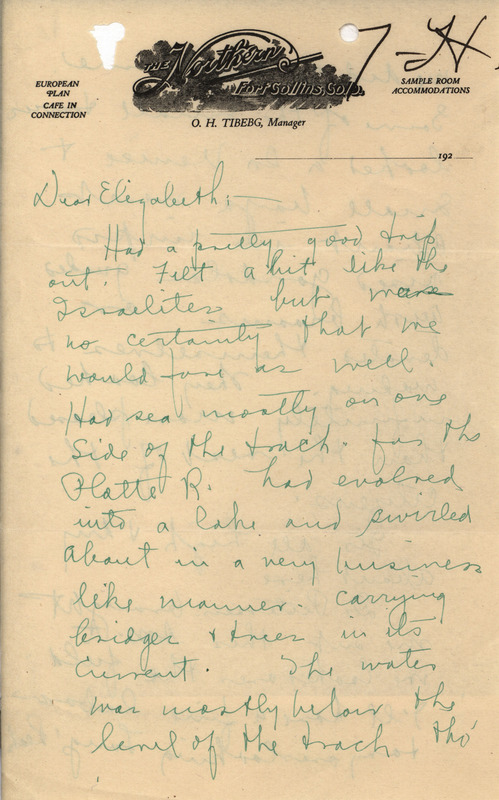 7-H
THE Northern
Fort Collins, Colo.
EUROPEAN
PLAN
CAFE IN
CONNECTION
SAMPLE ROOM
ACCOMMODATIONS
O. H. TIBEBG, Manager
192
Dear Elizabeth:-
Had a pretty good trip
out. Felt a bit like the
Israelites but was
no certainty that we
would fare as well.
Had sea mostly on one
side of the track. for the
Platte R. had evolved
into a lake and swirled
about in a very business
like manner. carrying
bridges + trees in its
current. The water
was mostly below the
level of the track tho'